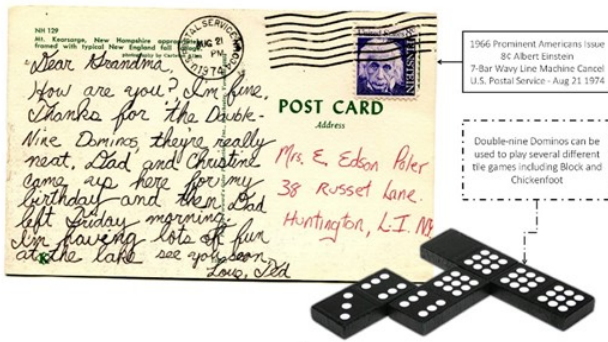 NH 129
Mt. Kearsarge, New Hampshire
framed with typical New England fall
photography by
Dear Grandma,
How are you? I'm fine.
Thanks for the Double-
Nine Dominos, they're really
neat. Dad and Christine
came up here for my
birthday and then Dad
left Friday morning.
I'm having lots of fun
at the lake see you soon
Love, Ted
U.S. POSTAL SERVICE
AUG 21
PM
1974
EINSTEIN
POST CARD
Address
Mrs. E. Edson Poler
38 Russet Lane.
Huntington, L.I. NY.
1966 Prominent Americans Issue
8¢ Albert Einstein
7-Bar Wavy Line Machine Cancel
U.S. Postal Service - Aug 21 1974
Double-nine Dominos can be
used to play several different
tile games including Block and
Chickenfoot